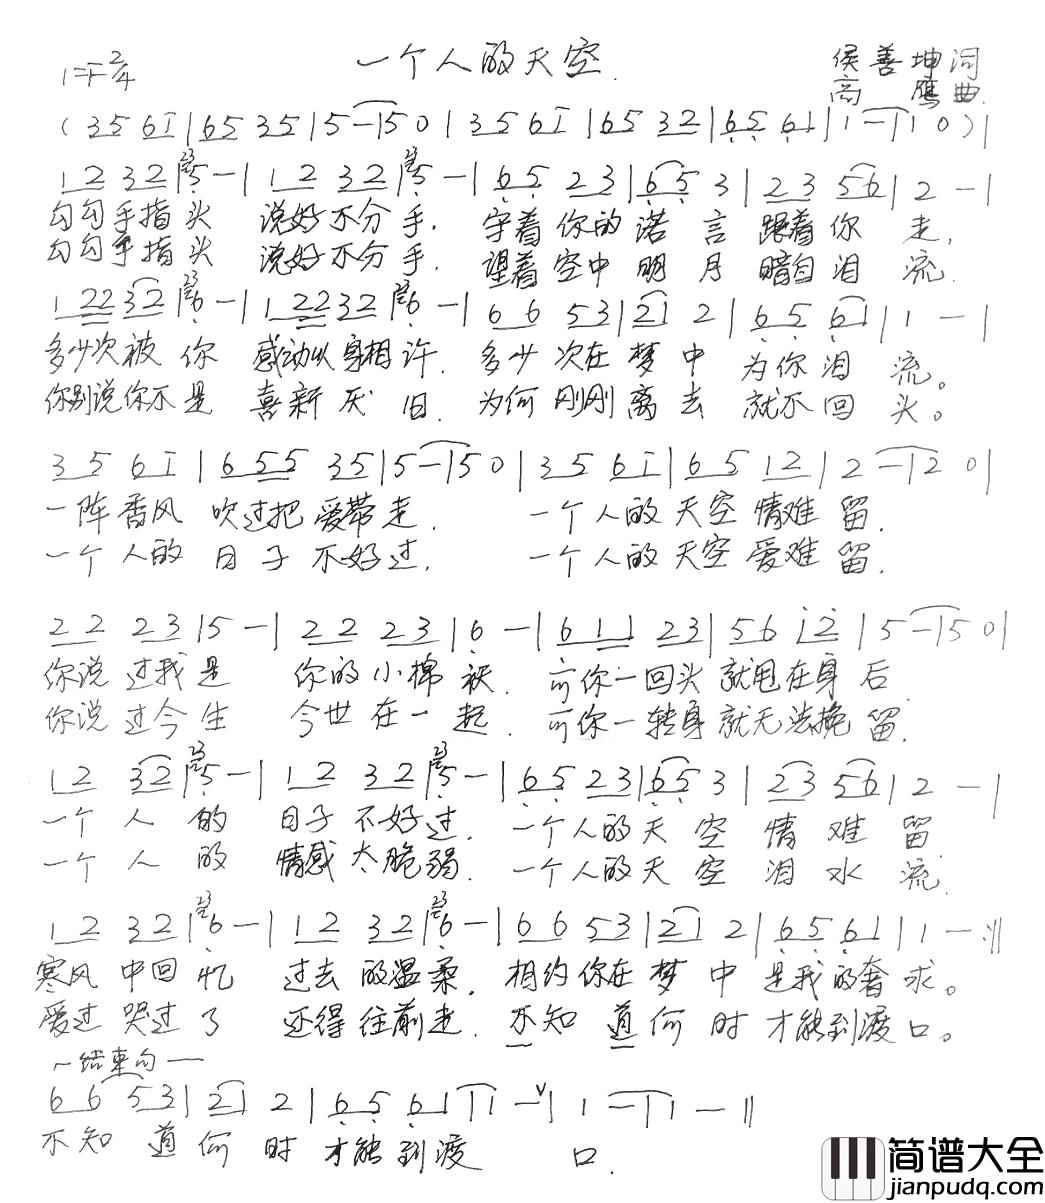 一个人的天空.
1=F 2/4
侯善坤 词
高 鹰 曲.
(3 5 6 i | 6 5 3 5 | 5 - | 5 0 | 3 5 6 i | 6 5 3 2 | 6 5 6 1 | 1 - | 1 0 ) |
1 2 3 2 | 5 - | 1 2 3 2 | 5 - | 6 5 2 3 | 6 5 3 | 2 3 5 6 | 2 - |
勾勾手指头 说好不分手. 守着你的诺言 跟着你走,
勾勾手指头 说好不分手. 望着空中明月 暗自泪流.
1 2 2 3 2 | 6 - | 1 2 2 3 2 | 6 - | 6 6 5 3 | 2 1 2 | 6 5 6 1 | 1 - |
多少次被你 感动以身相许. 多少次在梦中 为你泪流。
你别说你不是 喜新厌旧. 为何刚刚离去 就不回头。
3 5 6 i | 6 5 5 3 5 | 5 - | 5 0 | 3 5 6 i | 6 5 1 2 | 2 - | 2 0 |
一阵香风 吹过把爱带走. 一个人的天空情难留.
一个人的日子不好过. 一个人的天空爱难留.
2 2 2 3 | 5 - | 2 2 2 3 | 6 - | 6 1 1 2 3 | 5 6 i 2 | 5 - | 5 0 |
你说过我是 你的小棉袄. 可你一回头就甩在身后.
你说过今生 今世在一起. 可你一转身就无法挽留.
1 2 3 2 | 5 - | 1 2 3 2 | 5 - | 6 5 2 3 | 6 5 3 | 2 3 5 6 | 2 - |
一个人的 日子不好过. 一个人的天空情难留.
一个人的 情感太脆弱. 一个人的天空泪水流.
1 2 3 2 | 6 - | 1 2 3 2 | 6 - | 6 6 5 3 | 2 1 2 | 6 5 6 1 | 1 - :||
寒风中回忆 过去的温柔. 相约你在梦中 是我的奢求。
爱过哭过了 还得往前走. 不知道何时才能到渡口。
~结束句—
6 6 5 3 | 2 1 2 | 6 5 6 1 | 1 - ∨ | 1 - | 1 - ||
不知道何时 才能到渡 口.
简谱大全
jianpudq.com